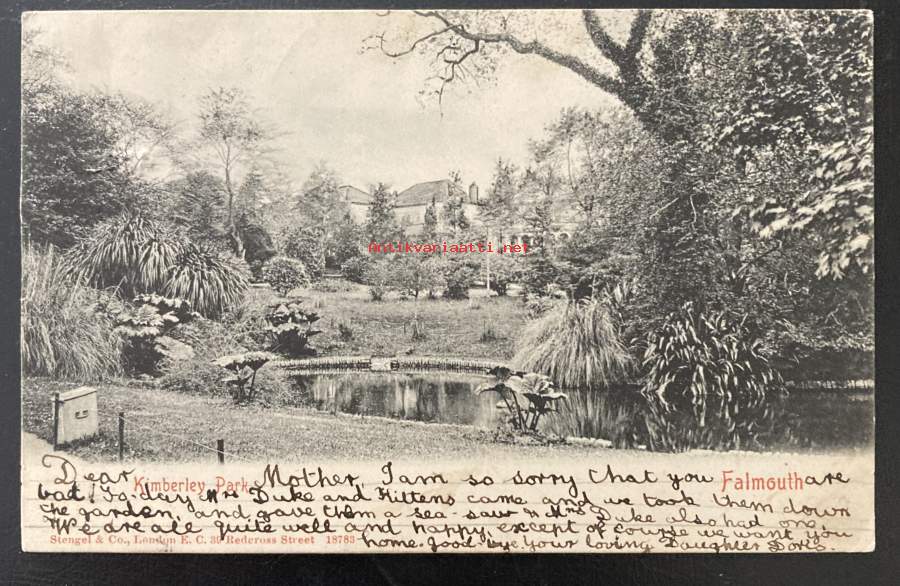 Antikvariaatti.net
Dear Kimberley Park Mother, I am so sorry that you Falmouth are
bad, to-day Mrs Duke and Kittens came and we took them down
the garden, and gave them a sea-saw Mrs Duke also had one,
We are all quite well and happy, except of course we want you
Stengel & Co., London E. C. 39 Redcross Street 18783 home. good-bye Your loving Daughter Doris.